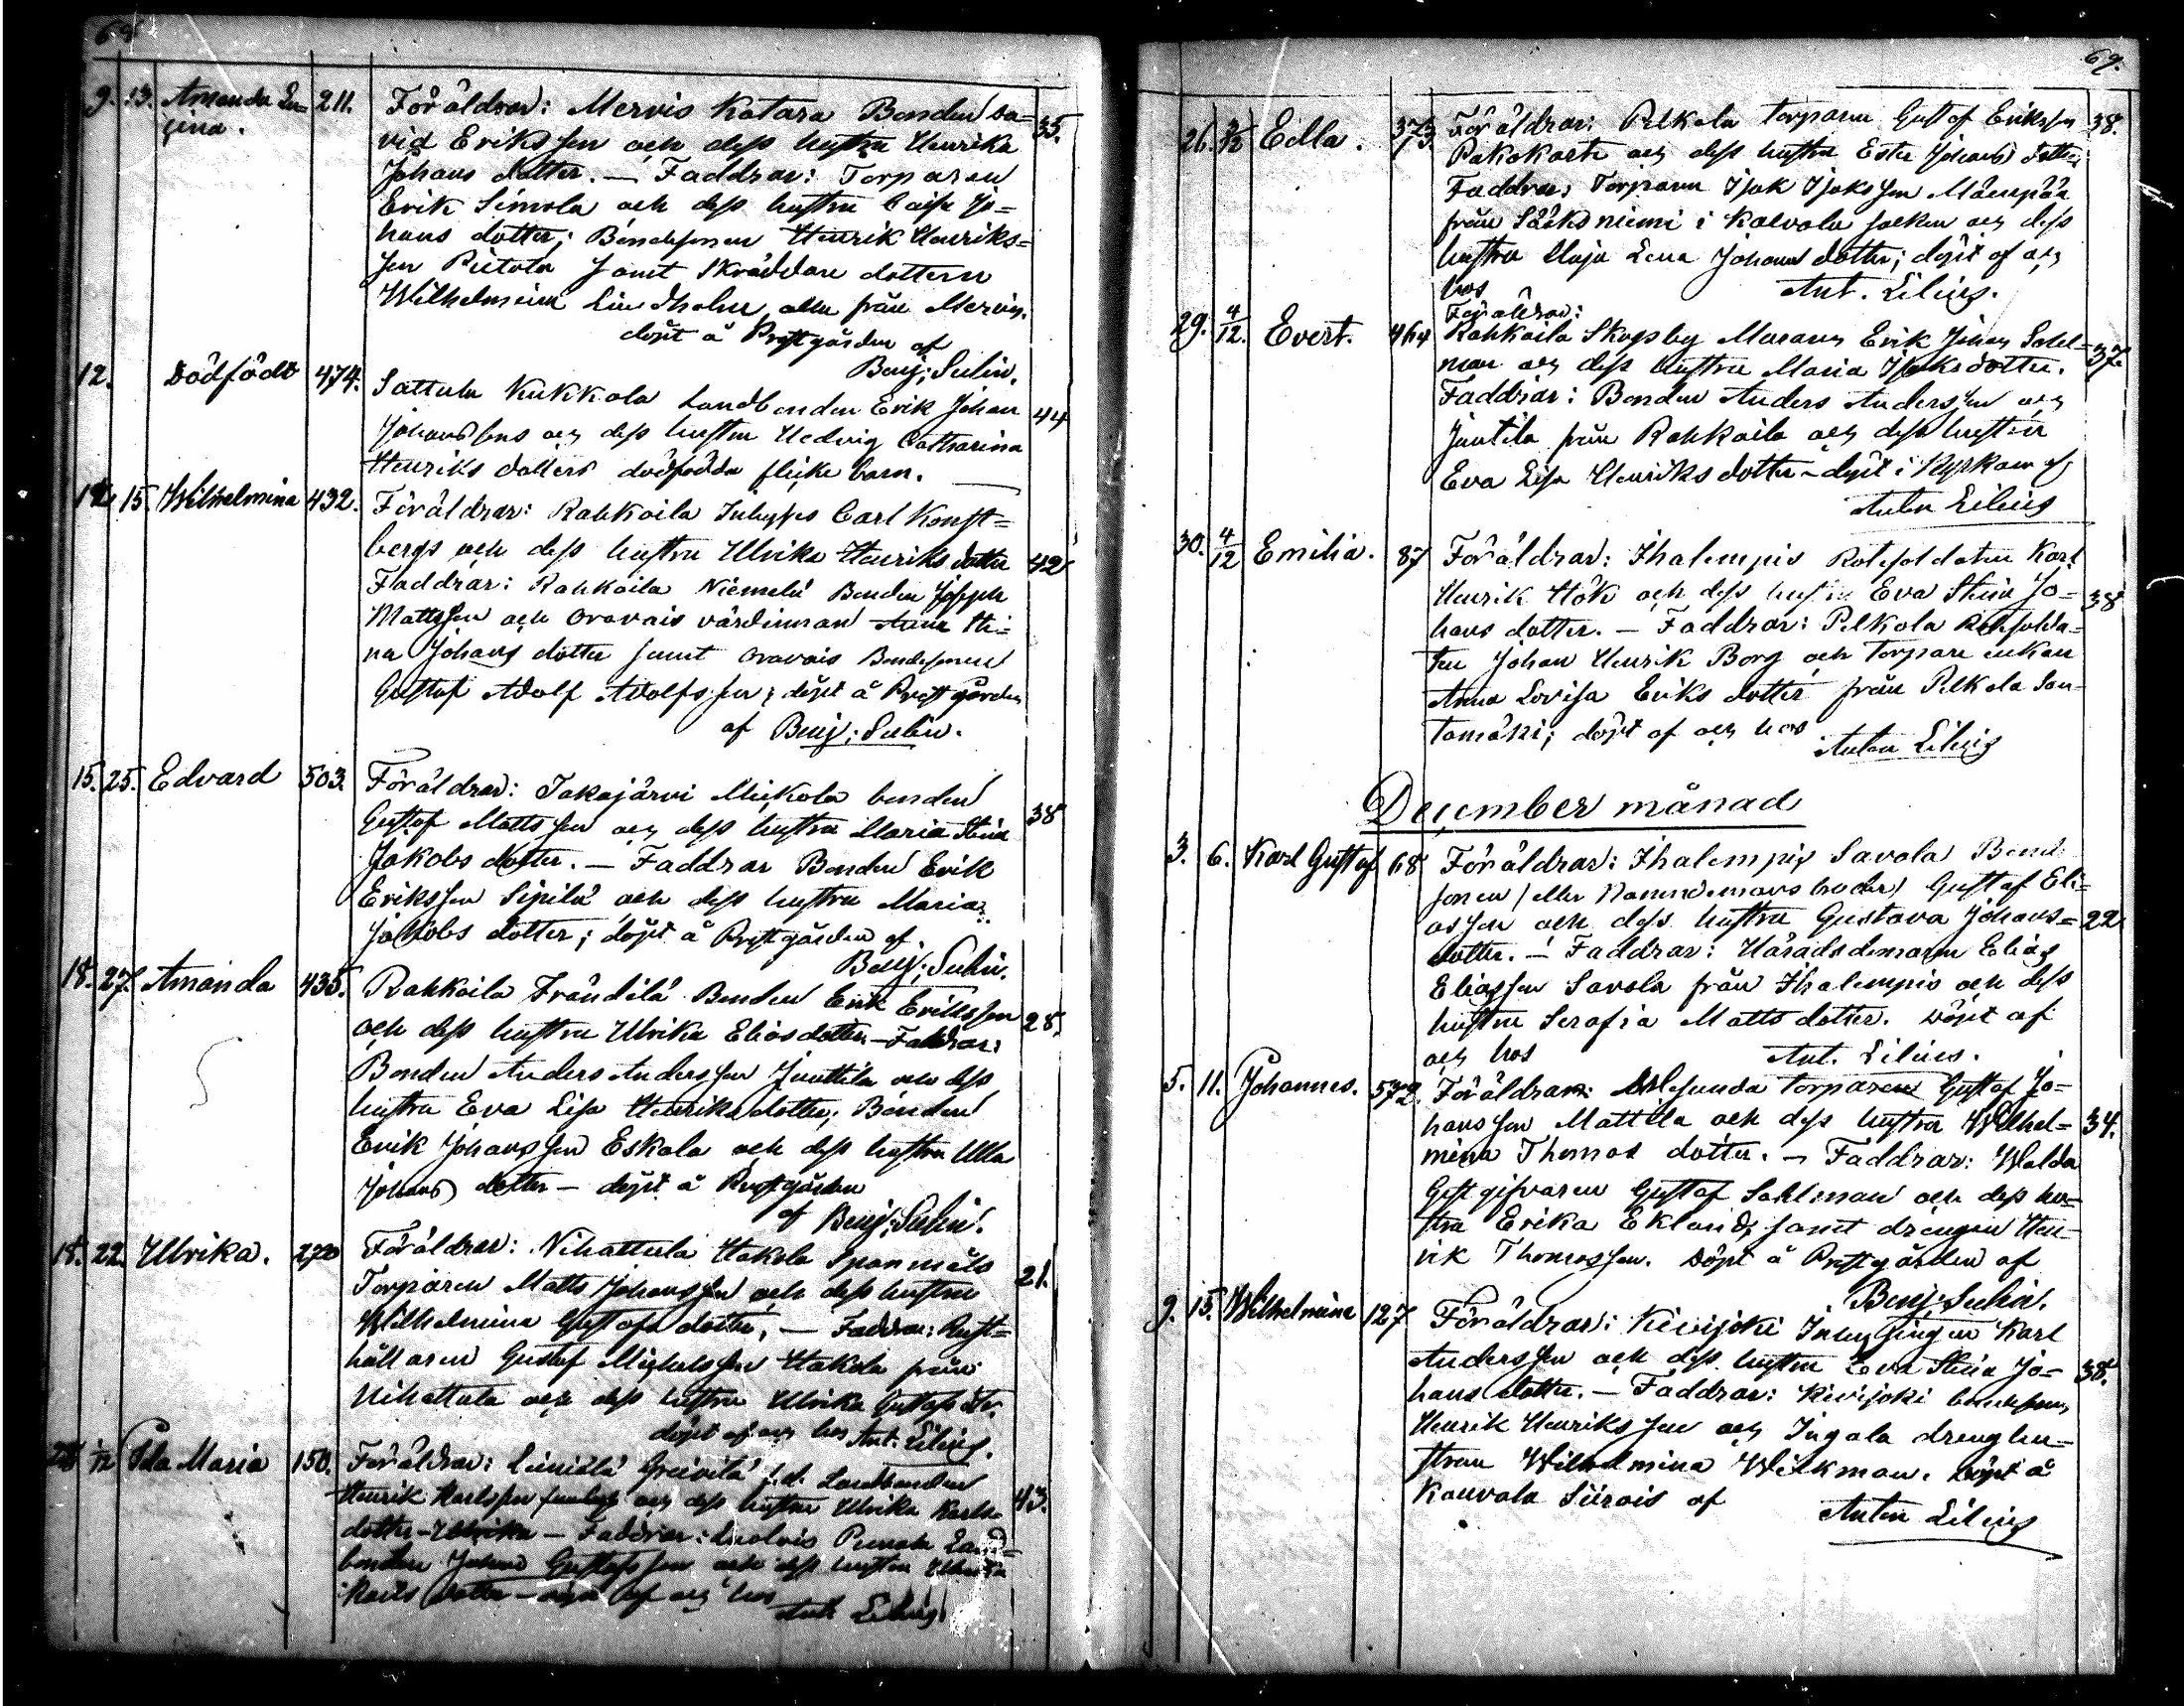 68
9. 13. Amanda Lu= 211. Föräldrar: Mervis Katara Bonden Da= 35.
gina. vid Eriksson och dess hustru Henrika
Johans dotter. — Faddrar: Torparen
Erik Simola och dess hustru Caisa Jo=
hans dotter; Bondesonen Henrik Henriks=
son Pietola samt Skräddare dottern
Wilhelmina Lindholm alla från Mervis.
döpt å Prestgården af
Benj: Sulin.
12. Dödfödt 474. Sattula Kukkola Landbonden Erik Johan 44
Johanssons och dess hustru Hedvig Catharina
Henriks dotters dödfödda flicke barn.
12. 15. Wilhelmina 432. Föräldrar: Rahkoila Inhyses Carl Konst=
bergs och dess hustru Ulrika Henriks dotter 42
Faddrar: Rahkoila Niemelä Bonden Joseph
Mattsson och Oravais värdinnan Anna Sti=
na Johans dotter samt Oravais Bondesonen
Gustaf Adolf Adolfsson; döpt å Prestgården
af Benj: Sulin.
15. 25. Edvard 503. Föräldrar: Takajärvi Mickola bonden
Gustaf Mattsson och dess hustru Maria Stina 38
Jakobs dotter. — Faddrar Bonden Erik
Eriksson Sipilä och dess hustru Maria
Jakobs dotter; döpt å Prestgården af
Benj: Sulin.
18. 27. Amanda 435. Rahkoila Frändilä Bonden Erik Eriksson 28.
och dess hustru Ulrika Eliasdotter — Faddrar:
Bonden Anders Andersson Junttila och dess
hustru Eva Lisa Henriks dotter; Bonden
Erik Johansson Eskola och dess hustru Ulla
Johans dotter — döpt å Prestgården
af Benj: Sulin.
18. 22. Ulrika. 220 Föräldrar: Nihattula Hakola Spanmåls 21.
Torparen Matts Johansson och dess hustru
Wilhelmina Gustafs dotter, — Faddrar: Rust=
hållaren Gustaf Michelsson Hakola från
Nihattula och dess hustru Ulrika Gustafs dr.
döpt af och hos Ant. Lilius.
1/12 Ida Maria 150. Föräldrar: f.d. Landbonden
Henrik Karlsson och dess hustru Ulrika Karls= 43.
dotter — Ulrika — Faddrar: Land=
bonden Johan Gustafsson och dess hustru Ulrika
Karls dotter — döpt af och hos
Ant. Lilius
69.
26. 3/12 Edla. 373. Föräldrar: Pelkola torparen Gustaf Eriksson 38.
Pakokorte och dess hustru Ester Johans dotter
Faddrar: Torparen Isak Isaksson Mämpää
från Sääksniemi i Kalvola socken och dess
hustru Maja Lena Johans dotter; döpt af och
hos Ant. Lilius.
29. 4/12. Evert. 464 Föräldrar:
Rahkoila Skogsby Muraren Erik Johan Sahl= 37.
man och dess hustru Maria Isaksdotter.
Faddrar: Bonden Anders Andersson och
Juntila från Rahkoila och dess hustru
Eva Lisa Henriks dotter — döpt i Kyrkan af
Anton Lilius
30. 4/12 Emilia. 87 Föräldrar: Ihalempis Rotesoldaten Karl
Henrik Hök och dess hustru Eva Stina Jo= 38
hans dotter. — Faddrar: Pelkola Rotesolda=
ten Johan Henrik Borg och Torpare enkan
Anna Lovisa Eriks dotter från Pelkola San=
tamäki; döpt af och hos
Anton Lilius
December månad
3. 6. Karl Gustaf 68 Föräldrar: Ihalempis Savola Bond
sonen (eller Nämndemans broder) Gustaf Eli=
asson och dess hustru Gustava Johans= 22
dotter. — Faddrar: Häradsdomaren Elias
Eliasson Savola från Ihalempis och dess
hustru Serafia Matts dotter. Döpt af
och hos Ant. Lilius.
5. 11. Johannes. 572. Föräldrar: torparen Gustaf Jo=
hansson Mattila och dess hustru Wilhel= 34.
mina Thomas dotter. — Faddrar: Walda
Gestgifvaren Gustaf Sahlman och dess hu=
stru Erika Eklund; samt drengen Hen=
rik Thomasson. Döpt å Prestgården af
Benj: Sulin.
9. 15. Wilhelmina 127 Föräldrar: Kivijoki Inhysingen Karl
Andersson och dess hustru Eva Stina Jo= 38.
hans dotter. — Faddrar: Kivijoki bondeson
Henrik Henriksson och Ingala drenghu=
strun Wilhelmina Wilkman. Döpt å
Kauvola Siirois af Anton Lilius